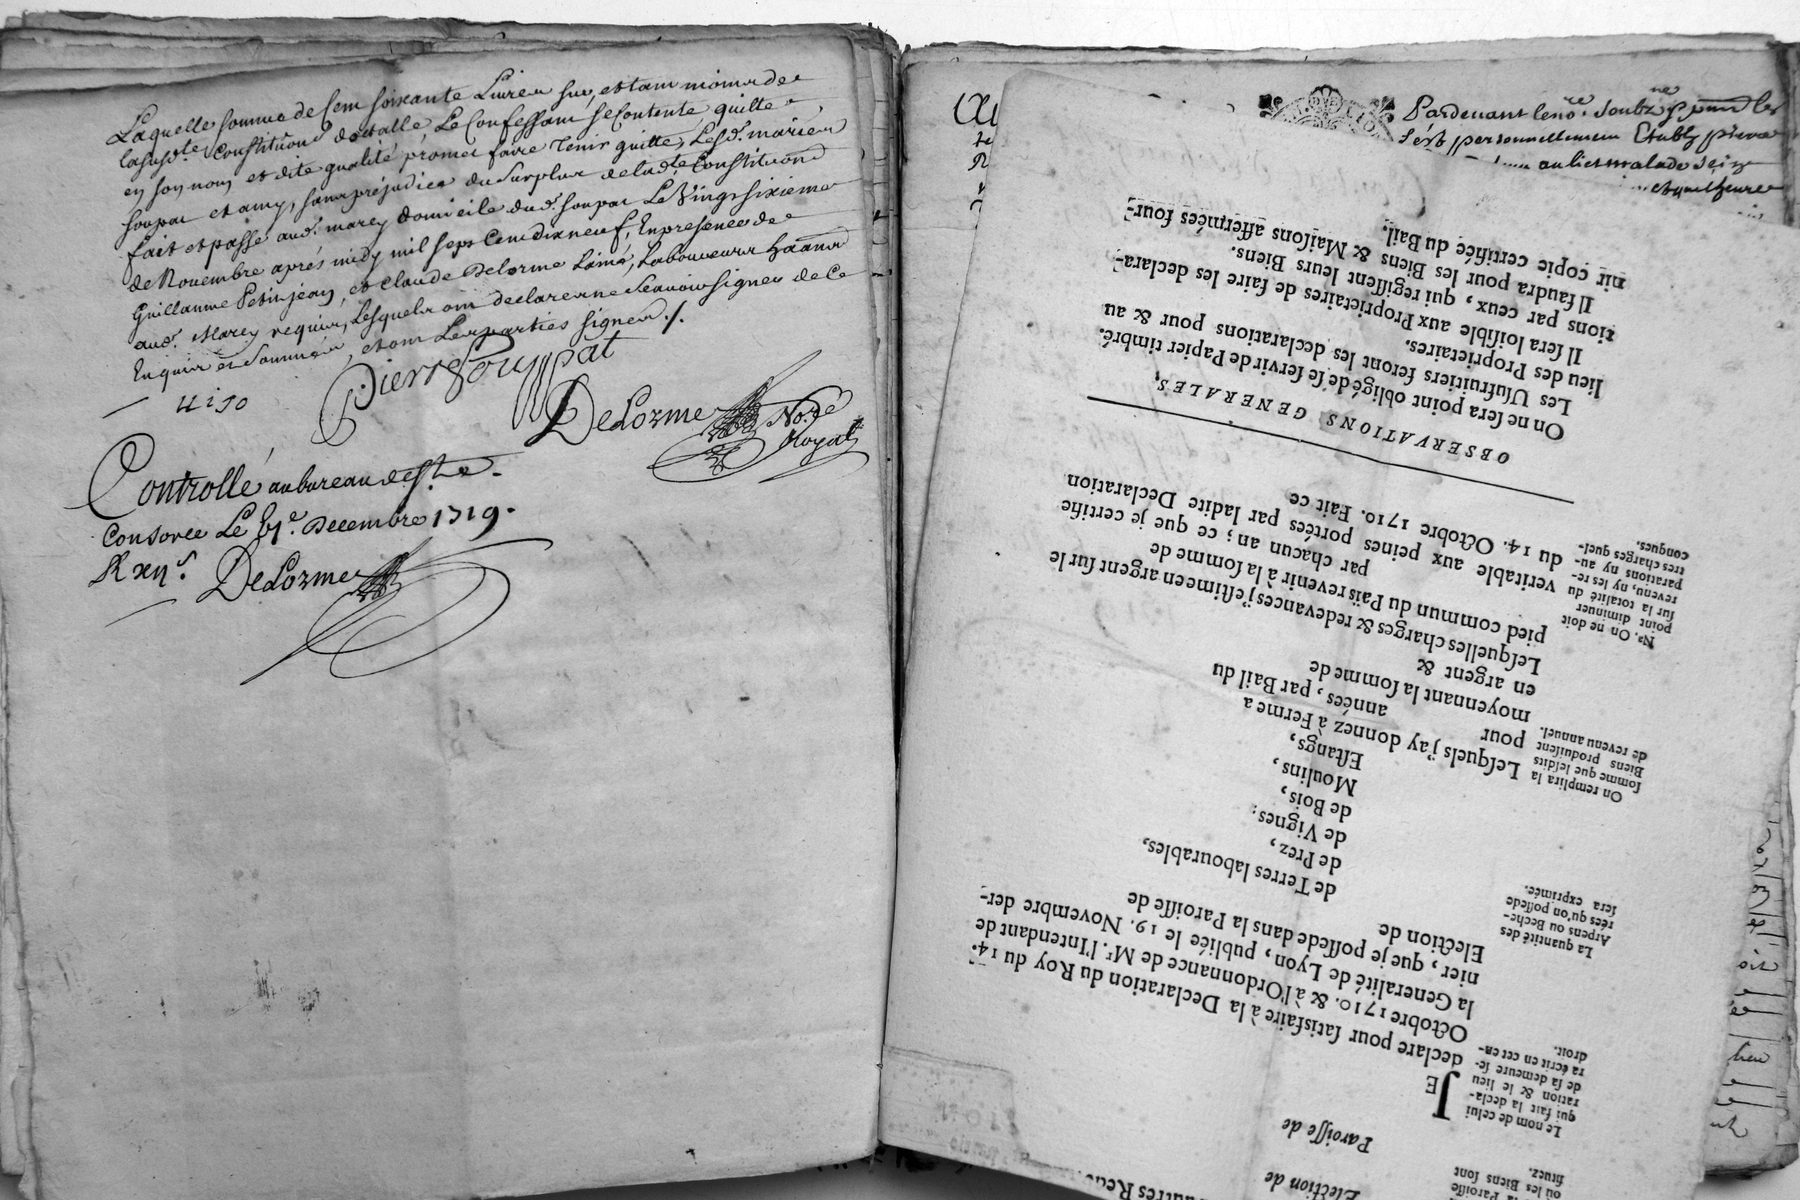 Laquelle somme de Cent soixante Livres sur, et tant moins de
lasusd.te Constitution dotalle, Le Confessant se Contente, quitte
en son nom et dite qualité promet faire Tenir quitte, Lesd. mariés
soupat et amy, sans préjudice du Surplus de lad.te Constitution
fait et passé aud. marcy domicile dud. soupat Le Vingt sixieme
de Novembre aprés midy mil sept Cent dix neuf, En presence de
Guillaume Petitjean, et Claude Delorme Lainé, Laboureurs
aud. Marcy requis, Lesquels ont declaré ne Scavoir signer de Ce
Enquis et Sommés, et ont Les parties signés ./.
Pierre Souppat
DeLorme No.re
Royal
Controllé au bureau de
Le Decembre 1719.
R xii s. DeLorme
Pardevant le no.re soubz.né
personnellement Etably pierre
au lict malade
JE
declare pour satisfaire à la Declaration du Roy du 14.
Octobre 1710. & à l'Ordonnance de Mr. l'Intendant de
la Generalité de Lyon, publiée le 19. Novembre der-
nier, que je possede dans la Paroisse de
Election de
de Terres labourables,
de Prez,
de Vignes,
de Bois,
Moulins,
Estangs,
Lesquels j'ay donnez à Ferme a
pour années, par Bail du
moyennant la somme de
en argent &
Lesquelles charges & redevances j'estime en argent sur le
pied commun du Païs revenir à la somme de
par chacun an; ce que je certifie
veritable aux peines portées par ladite Declaration
du 14. Octobre 1710. Fait ce
OBSERVATIONS GENERALES,
On ne sera point obligé de se servir de Papier timbré.
Les Usufruitiers feront les declarations pour & au
lieu des Proprietaires.
Il sera loisible aux Proprietaires de faire les declara-
tions par ceux, qui regissent leurs Biens.
Il faudra pour les Biens & Maisons affermées four-
nir copie certifiée du Bail.
Paroisse de
Election de
la Paroisse
où les Biens sont
situez.
Le nom de celui
qui fait la decla-
ration & le lieu
de sa demeure se-
ra écrit en cet en-
droit.
La quantité des
Arpens ou Beche-
rées qu'on possede
sera exprimée.
On remplira la
somme que lesdits
Biens produisent
de revenu annuel.
Na. On ne doit
point diminuer
sur la totalité du
revenu, ny les re-
parations ny au-
tres charges quel-
conques.